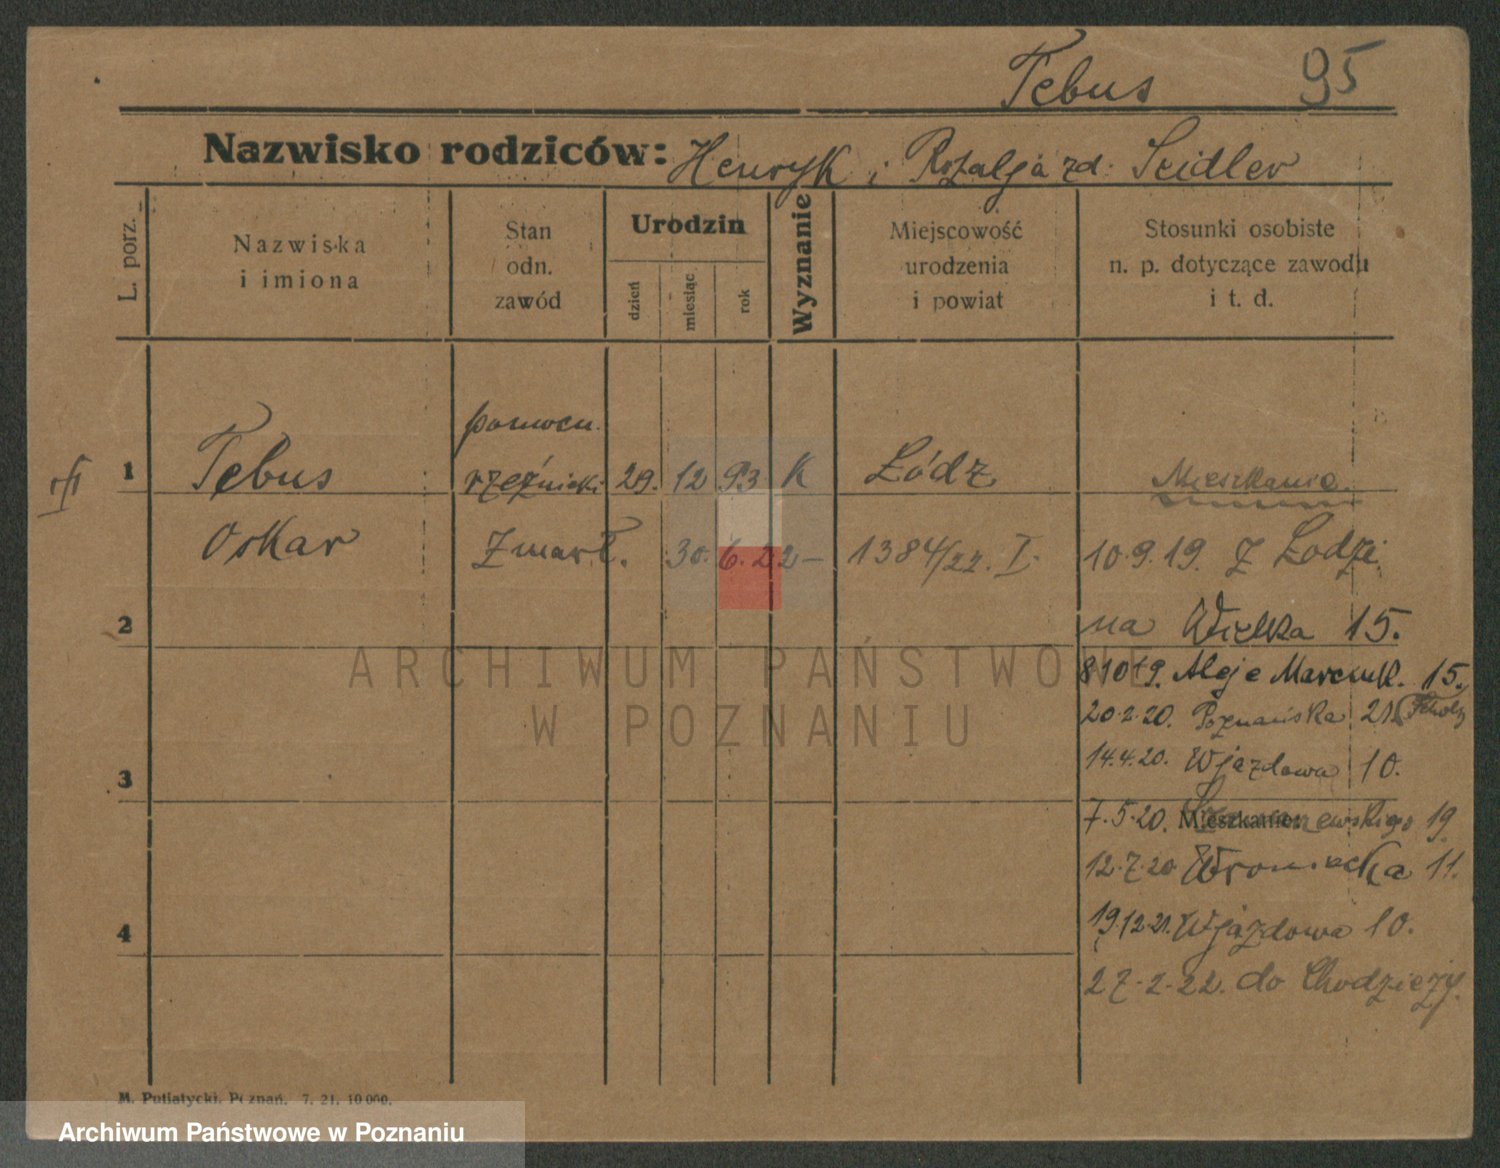 Tebus 95
Nazwisko rodziców: Henryk i Rozalja zd. Seidler
L. porz.
Nazwiska
i imiona
Stan
odn.
zawód
Urodzin
dzień
miesiąc
rok
Wyznanie
Miejscowość
urodzenia
i powiat
Stosunki osobiste
n. p. dotyczące zawodu
i t. d.
pomocn.
1 Tebus rzeźnicki 29. 12 93 K Łódz Mieszkanie
Oskar Zmarł. 30. 6. 22 – 1384/22. I. 10.9.19. z Łodzi
2 na Wielka 15.
8 10 19. Aleje Marcink. 15.
20.2.20. Poznańska 21.
3 14.4.20. Wjazdowa 10.
7.5.20. Mieszkanie: 19.
12.7.20 Wroniecka 11.
4 19.12.21. Wjazdowa 10.
27.2.22. do Chodzieży.
M. Putiatycki, Poznań. 7. 21. 10 000.
ARCHIWUM PAŃSTWOWE
W POZNANIU
Archiwum Państwowe w Poznaniu